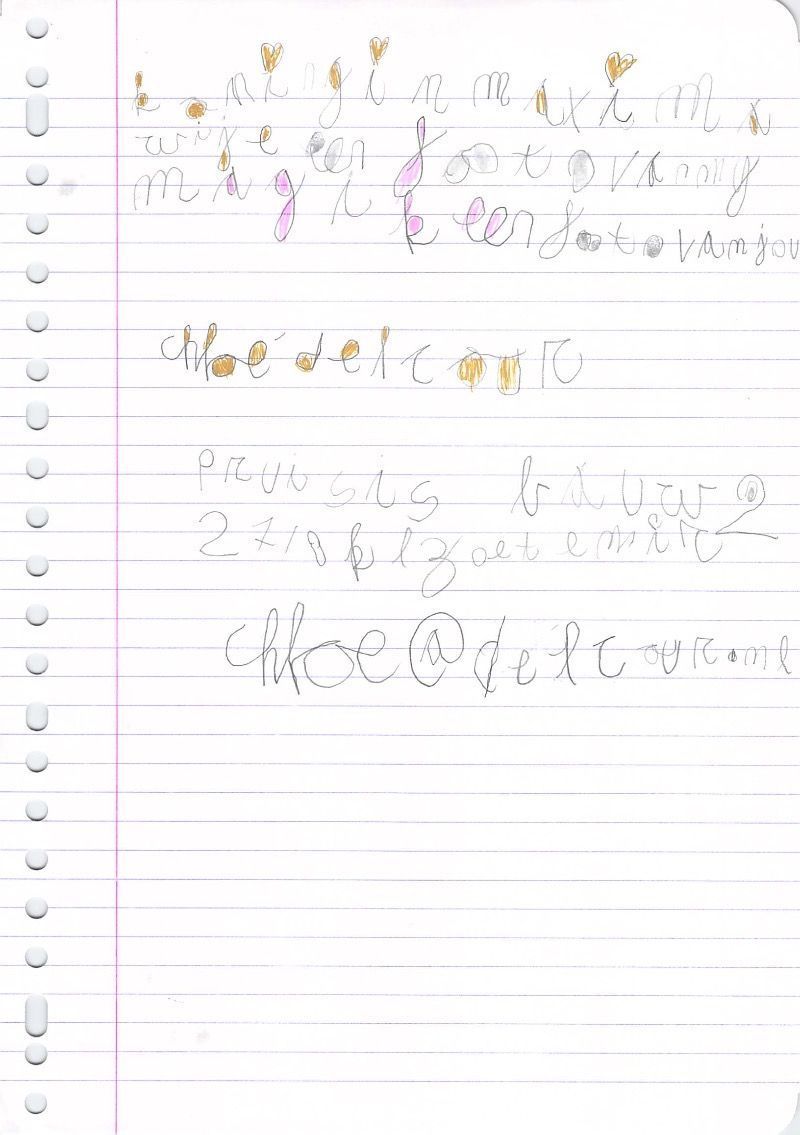 koningin maxima
wij e een foto van my
mag ik een foto van jou
chloé delcour
pruisis bauw 2
2718 kl zoetermir
chloe@delcour.nl